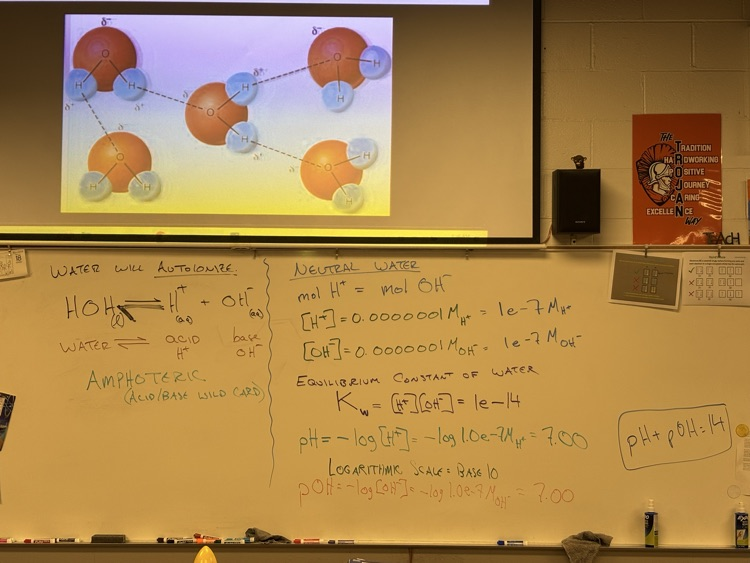 δ⁻
O
H
H
δ⁺
O
H
H
δ⁺
δ⁻
O
H
H
O
H
H
O
H
H
THE
TRADITION
HARDWORKING
POSITIVE
JOURNEY
CARING
EXCELLENCE
WAY
WATER WILL AUTOIONIZE.
HOH(l) ⇌ H⁺(aq) + OH⁻(aq)
WATER ⇌ acid base
H⁺ OH⁻
AMPHOTERIC
(ACID/BASE WILD CARD)
NEUTRAL WATER
mol H⁺ = mol OH⁻
[H⁺] = 0.0000001 M H⁺ = 1e-7 M H⁺
[OH⁻] = 0.0000001 M OH⁻ = 1e-7 M OH⁻
EQUILIBRIUM CONSTANT OF WATER
Kw = [H⁺][OH⁻] = 1e-14
pH = -log[H⁺] = -log 1.0e-7 M H⁺ = 7.00
LOGARITHMIC SCALE = BASE 10
pOH = -log[OH⁻] = -log 1.0e-7 M OH⁻ = 7.00
pH + pOH = 14